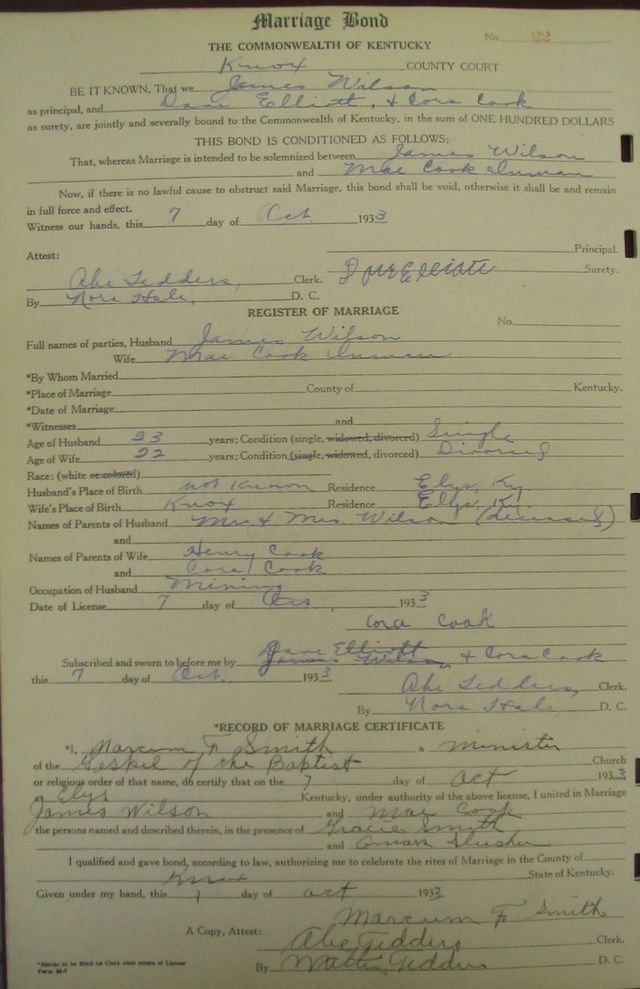 Marriage Bond
No. 22
THE COMMONWEALTH OF KENTUCKY
Knox COUNTY COURT
BE IT KNOWN, That we James Wilson
as principal, and Dave Elliott, & Cora Cook
as surety, are jointly and severally bound to the Commonwealth of Kentucky, in the sum of ONE HUNDRED DOLLARS
THIS BOND IS CONDITIONED AS FOLLOWS:
That, whereas Marriage is intended to be solemnized between James Wilson
and Mae Cook Inman
Now, if there is no lawful cause to obstruct said Marriage, this bond shall be void, otherwise it shall be and remain
in full force and effect.
Witness our hands, this 7 day of Oct. 1933
Principal.
Attest:
Abe Tedders, Clerk. Elliott Surety.
By Nora Hale, D. C.
REGISTER OF MARRIAGE
No.
Full names of parties, Husband James Wilson
Wife Mae Cook Inman
*By Whom Married
*Place of Marriage County of Kentucky.
*Date of Marriage
*Witnesses and
Age of Husband 23 years; Condition (single, widowed, divorced) Single
Age of Wife 22 years; Condition (single, widowed, divorced) Divorced
Race: (white or colored)
Husband's Place of Birth not Known Residence Elys, Ky.
Wife's Place of Birth Knox Residence Elys, Ky.
Names of Parents of Husband Mr & Mrs Wilson (deceased)
and
Names of Parents of Wife Henry Cook
and Cora Cook
Occupation of Husband Mining
Date of License 7 day of 1933
Cora Cook
Dave Elliott
Subscribed and sworn to before me by James Wilson & Cora Cook
this 7 day of Oct. 1933
Abe Tedders, Clerk.
By Nora Hale, D. C.
*RECORD OF MARRIAGE CERTIFICATE
*I, Marcum F Smith a minister
of the Gospel of the Baptist Church
or religious order of that name, do certify that on the 7 day of oct 1933
at Elys Kentucky, under authority of the above license, I united in Marriage
James Wilson and Mae Cook
the persons named and described therein, in the presence of Gracie Smith
and Slusher
I qualified and gave bond, according to law, authorizing me to celebrate the rites of Marriage in the County of
Knox State of Kentucky.
Given under my hand, this 7 day of oct 1933
Marcum F Smith
A Copy, Attest: Abe Tedders Clerk.
By Walter Tedders D. C.
*Blanks to be filled by Clerk after return of License